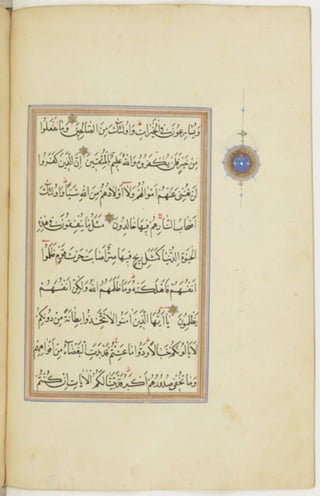 ويسارعون في الخيرات واولئك من الصالحين وما تفعلوا
من خير فلن تكفروه والله عليم بالمتقين ان الذين كفروا
لن تغني عنهم اموالهم ولا اولادهم من الله شيئا واولئك
اصحاب النار هم فيها خالدون مثل ما ينفقون في هذه
الحيوة الدنيا كمثل ريح فيها صر اصابت حرث قوم ظلموا
انفسهم فاهلكته وما ظلمهم الله ولكن انفسهم
يظلمون يا ايها الذين امنوا لا تتخذوا بطانة من دونكم
لا يألونكم خبالا ودوا ما عنتم قد بدت البغضاء من افواههم
وما تخفي صدورهم اكبر قد بينا لكم الايات ان كنتم